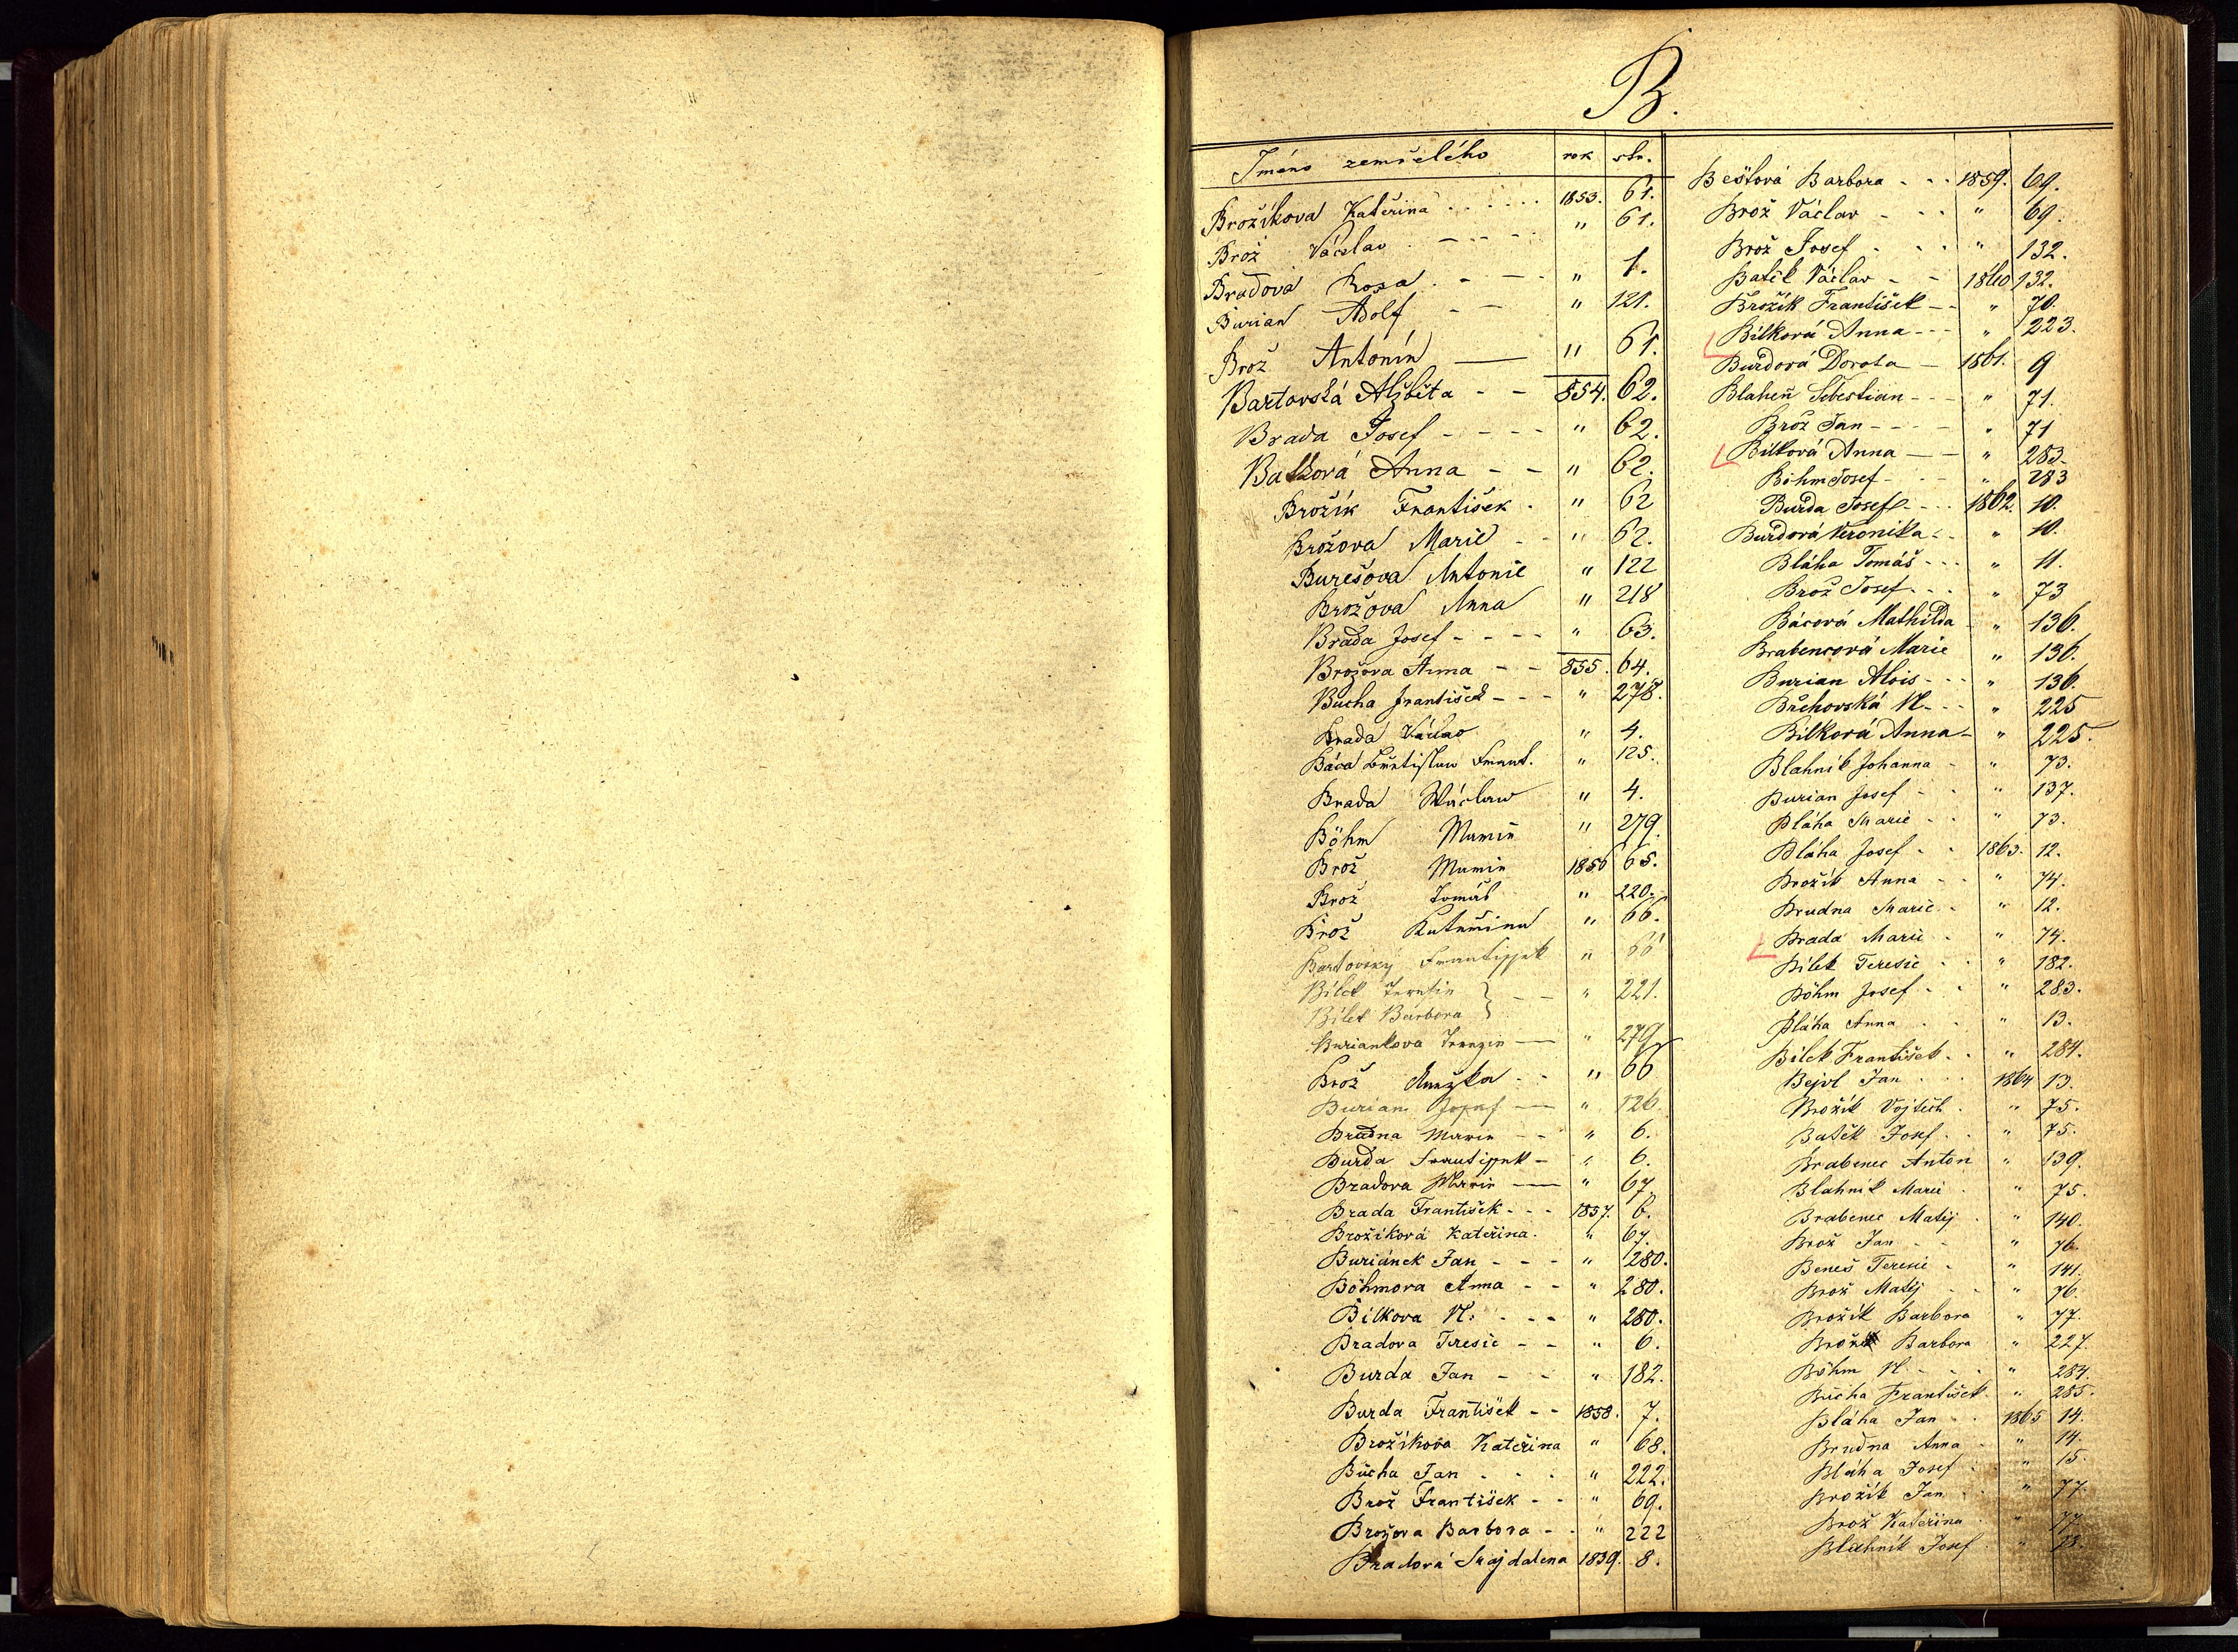 B.
Jméno zemřelého rok str.
Brožíkova Kateřina . . . . . . 1853. 61.
Brož Václav . - - - - " 61.
Bradová Rosa . - - - " 1.
Burian Adolf - - " 121.
Brož Antonín — " 61.
Bartovská Alžběta - - 854. 62.
Brada Josef - - - - " 62.
Anna - - " 62.
Brožík František . " 62
Brožova Marie - - " 62.
Burešova Antonie " 122
Brožova Anna " 218
Brada Josef - - - - " 63.
Brožova Anna - - 855. 64.
Bucha František - - - " 278.
Brada Václav " 4.
Báča Břetislaw Frant. " 125.
Brada Wáclaw " 4.
Böhm Marie " 279.
Brož Marie 1856 65.
Brož Tomáš " 220.
Brož Kateřina " 66.
Bartovsky Frantissek " 66
Bilek Teresie } - - " 221.
Bilek Barbora }
Buriankova Terezie — " 279
Brož Anežka - - " 66
Burian Josef — " 126.
Brudna Marie - - " 6.
Burda Frantissek - " 6.
Bradova Marie — " 67.
Brada František - - - 1857. 6.
Brožíková Kateřina. " 67.
Buriánek Jan - - - " 280.
Böhmova Anna - - " 280.
Bílkova N. . - - " 280.
Bradova Teresie - - " 6.
Burda Jan - - - " 182.
Burda František - - 1858. 7.
Brožíkova Kateřina " 68.
Bucha Jan . . . " 222.
Brož František - - " 69.
Brožova Barbora - - " 222
Bradová Majdalena 1859. 8.
Beštová Barbora - - - 1859. 69.
Brož Václav - - - " 69.
Brož Josef . . . " 132.
Batěk Václav - - 1860 132.
Brožík František - - " 70.
Bílková Anna - - - " 223.
Burdová Dorota - 1861. 9
Blaheň Šebestian - - - " 71.
Brož Jan - - - - " 71
Bílková Anna - - " 283.
Böhm Josef - - - " 283
Burda Josef - - - 1862. 10.
Burdová Veronika - - " 10.
Bláha Tomáš - - - " 11.
Brož Josef - - - " 73
Bácová Mathilda - " 136.
Brabencová Marie " 136.
Burian Alois - - - " 136.
Břehovská N. - - - " 225
Bílková Anna - " 225.
Blahnik Johanna - " 73.
Burian Josef - - " 137.
Bláha Marie - - " 73.
Bláha Josef - - 1863. 12.
Brožík Anna - - " 74.
Brudna Marie. - " 12.
Brada Marie . " 74.
Bílek Teresie . . " 182.
Böhm Josef - . " 283.
Bláha Anna . . " 13.
Bílek František. . " 284.
Bejvl Jan . . . 1864 13.
Brožík Vojtěch . " 75.
Batěk Josef . . " 75.
Brabenec Anton " 139.
Blahnik Marie . " 75.
Brabenec Matěj . " 140.
Brož Jan - - " 76.
Beneš Teresie - " 141.
Brož Matěj - - " 76.
Brožík Barbora " 77.
Brož Barbora " 227.
Böhm N. - - - " 284.
Bucha František. " 285.
Bláha Jan - . 1865 14.
Brudna Anna . " 14.
Bláha Josef . . " 15.
Brožík Jan . . " 77.
Brož Kateřina . " 77.
Blahnik Josef . " 78.